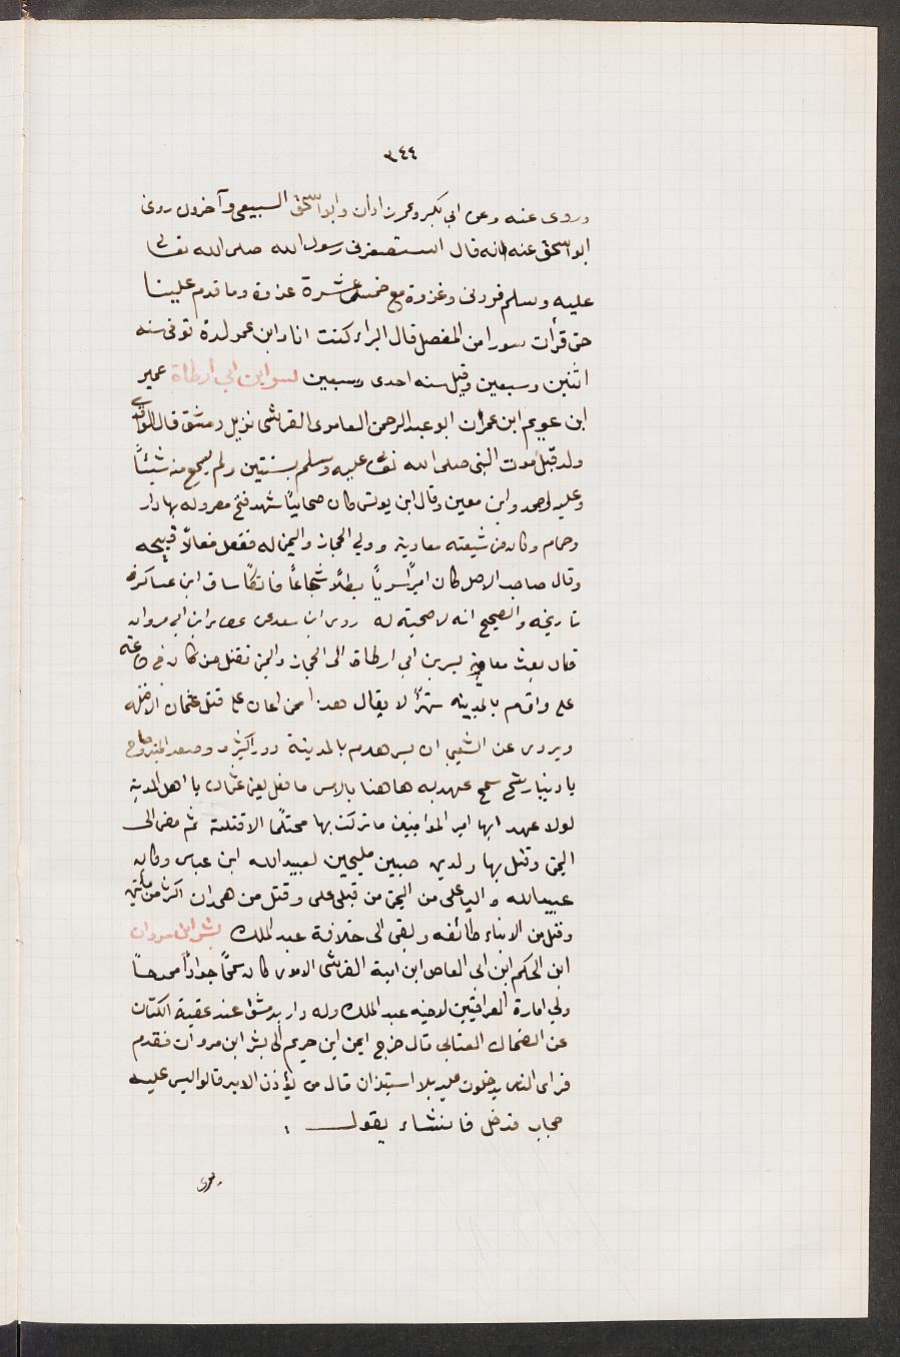 ٣٤٤
وروى عنه وعن ابي بكر وعمر زاذان وابو اسحق السبيعي وآخرون روى
ابو اسحق عنه انه قال استصغرني رسول الله صلى الله تعالى
عليه وسلم فردني وغزوة مع خمس عشرة غزوة وما قدم علينا
حتى قرأت سورا من المفصل قال البراء كنت انا وابن عمر لدة توفى سنه
اثنين وسبعين وقيل سنه احدى وسبعين بسر ابن ابي أرطاة عمير
ابن عويمر ابن عمران ابو عبد الرحمن العامرى القرشى نزيل دمشق قال الواقدي
ولد قبل موت النبى صلى الله تعالى عليه وسلم بسنتين ولم يسمع منه شيئاً
وعليه احمد وابن معين وقال ابن يونس كان صحابياً شهد فتح مصر وله بها دار
وحمام وكان من شيعته معاوية وولي الحجاز واليمن له ففعل فعالاً قبيحه
وقال صاحب الاصل كان اميراً سرياً بطلاً شجاعاً فاتكاً ساق ابن عساكر في
تاريخه والصحيح انه لا صحبته له روى ابن سعد عن عطاء ابن ابي مروان
قال بعث معاوية بسر بن ابي ارطاة الى الحجاز واليمن فقتل من كان في طاعته
على واقام بالمدينه شهراً لا يقال هذا ممن اعان على قتل عثمان الا قتله
ويروى عن الشعبي ان بسر هدم بالمدينة دورا كثيره وصعد المنبر وصاح
يا دينار شيخ سمح عهدته هاهنا بالامس ما فعل يعني عثمان يا اهل المدينة
لولا عهد امير المؤمنين ما تركت بها محتلماً الا قتلته ثم مضى الى
اليمن وقتل بها ولدي صبيين مليحين لعبيد الله ابن عباس وكان
عبيد الله واليا على من اليمن من قبل على وقتل من همدان اكثر من مأتين
وقتل من الابناء طائفه وبقي الى خلافة عبد الملك بشر ابن مروان
ابن الحكم ابن ابى العاص ابن امية القرشى الاموى كان سمحاً جواداً ممدحاً
ولي امارة العراقيين لاخيه عبد الملك وله دار بدمشق عند عقبة الكتان
عن الضحاك العتابى قال خرج ايمن ابن خريم الى بشر ابن مروان فقدم
فراى الناس يدخلون عليه بلا استيذان قال من يؤذن الامير قالوا ليس عليه
حجاب فدخل فانشاء يقول
يرى